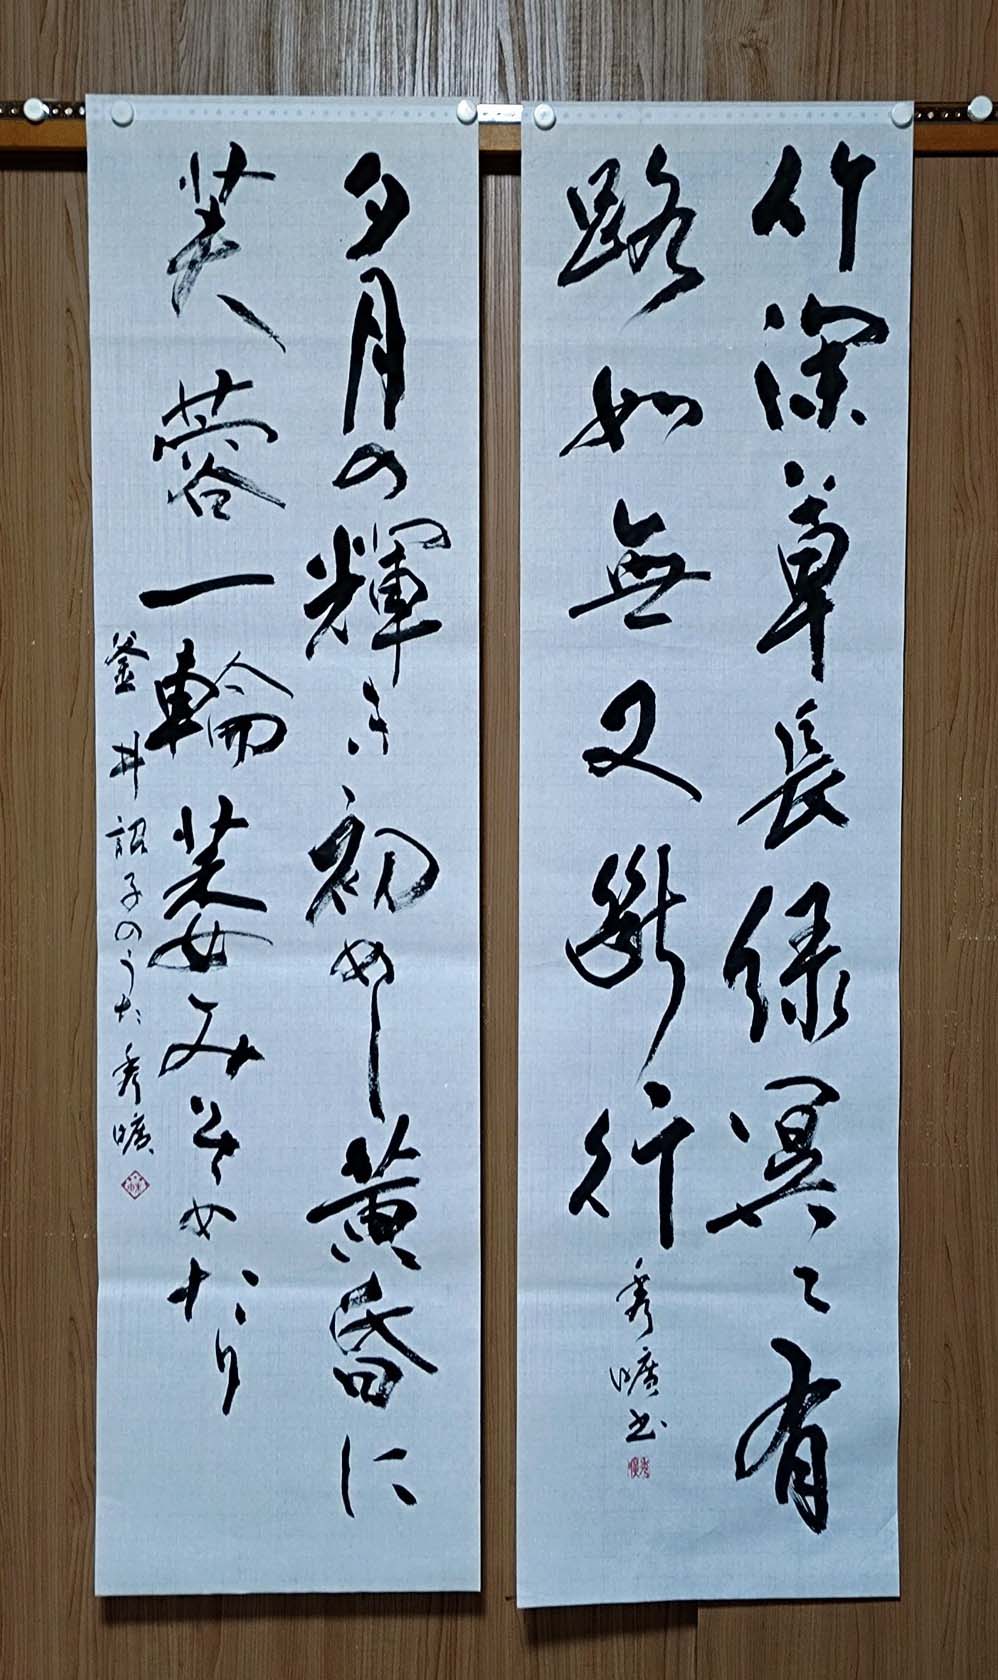 竹深草長緑冥々有
路如無又断行
秀曠書
夕月の輝き初めし黄昏に
芙蓉一輪萎みそめたり
釜井詔子のうた 秀曠